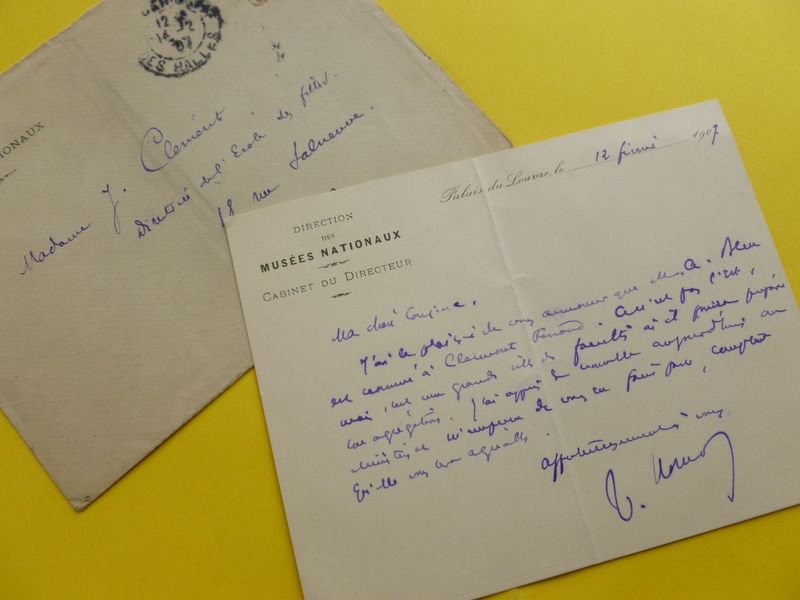 DES HALLES
Madame J. Clément
Directrice de l'Ecole des filles
18 rue
Palais du Louvre, le 12 février 1907
DIRECTION
DES
MUSÉES NATIONAUX
CABINET DU DIRECTEUR
Ma chère Cousine,
J'ai le plaisir de vous annoncer que M. A.
est nommé à Clermont Ferrand. Ce n'est pas
mais c'est une grande ville de facultés où il puisse préparer
son agrégation. J'ai appris la nouvelle aujourd'hui au
ministère et m'empresse de vous en faire part, comptant
qu'elle vous sera agréable.
affectueusement à vous